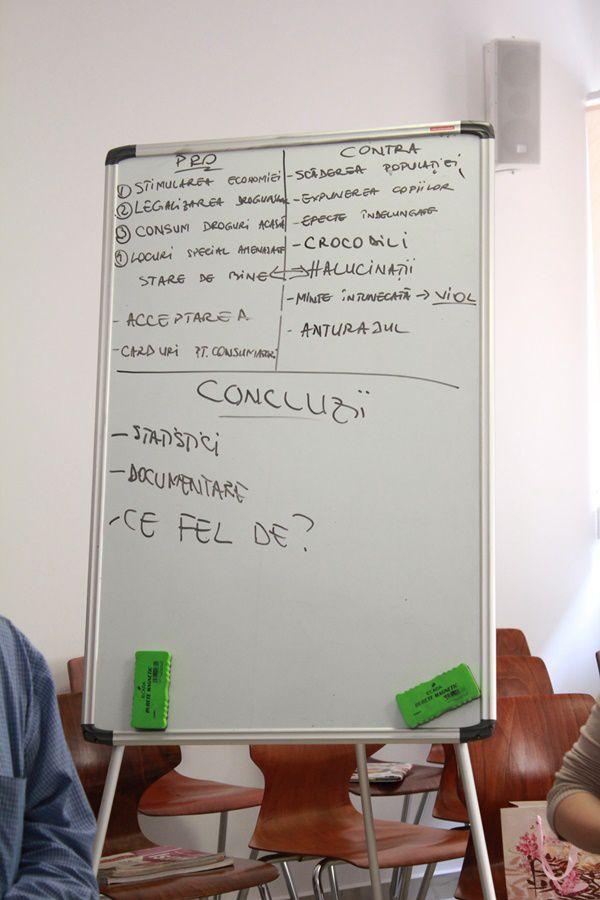 PRO
① STIMULAREA ECONOMIEI
② LEGALIZAREA
③ CONSUM DROGURI ACASĂ
④ LOCURI SPECIAL AMENAJATE
STARE DE BINE
- ACCEPTAREA
- CARDURI PT. CONSUMATORI
CONTRA
- SCĂDEREA POPULAȚIEI
- EXPUNEREA COPIILOR
- EFECTE ÎNDELUNGATE
- CROCODILI
HALUCINAȚII
- MINTE ÎNTUNECATĂ → VIOL
- ANTURAJUL
CONCLUZII
- STATISTICI
- DOCUMENTARE
- CE FEL DE?
BURETE MAGNETIC
BURETE MAGNETIC